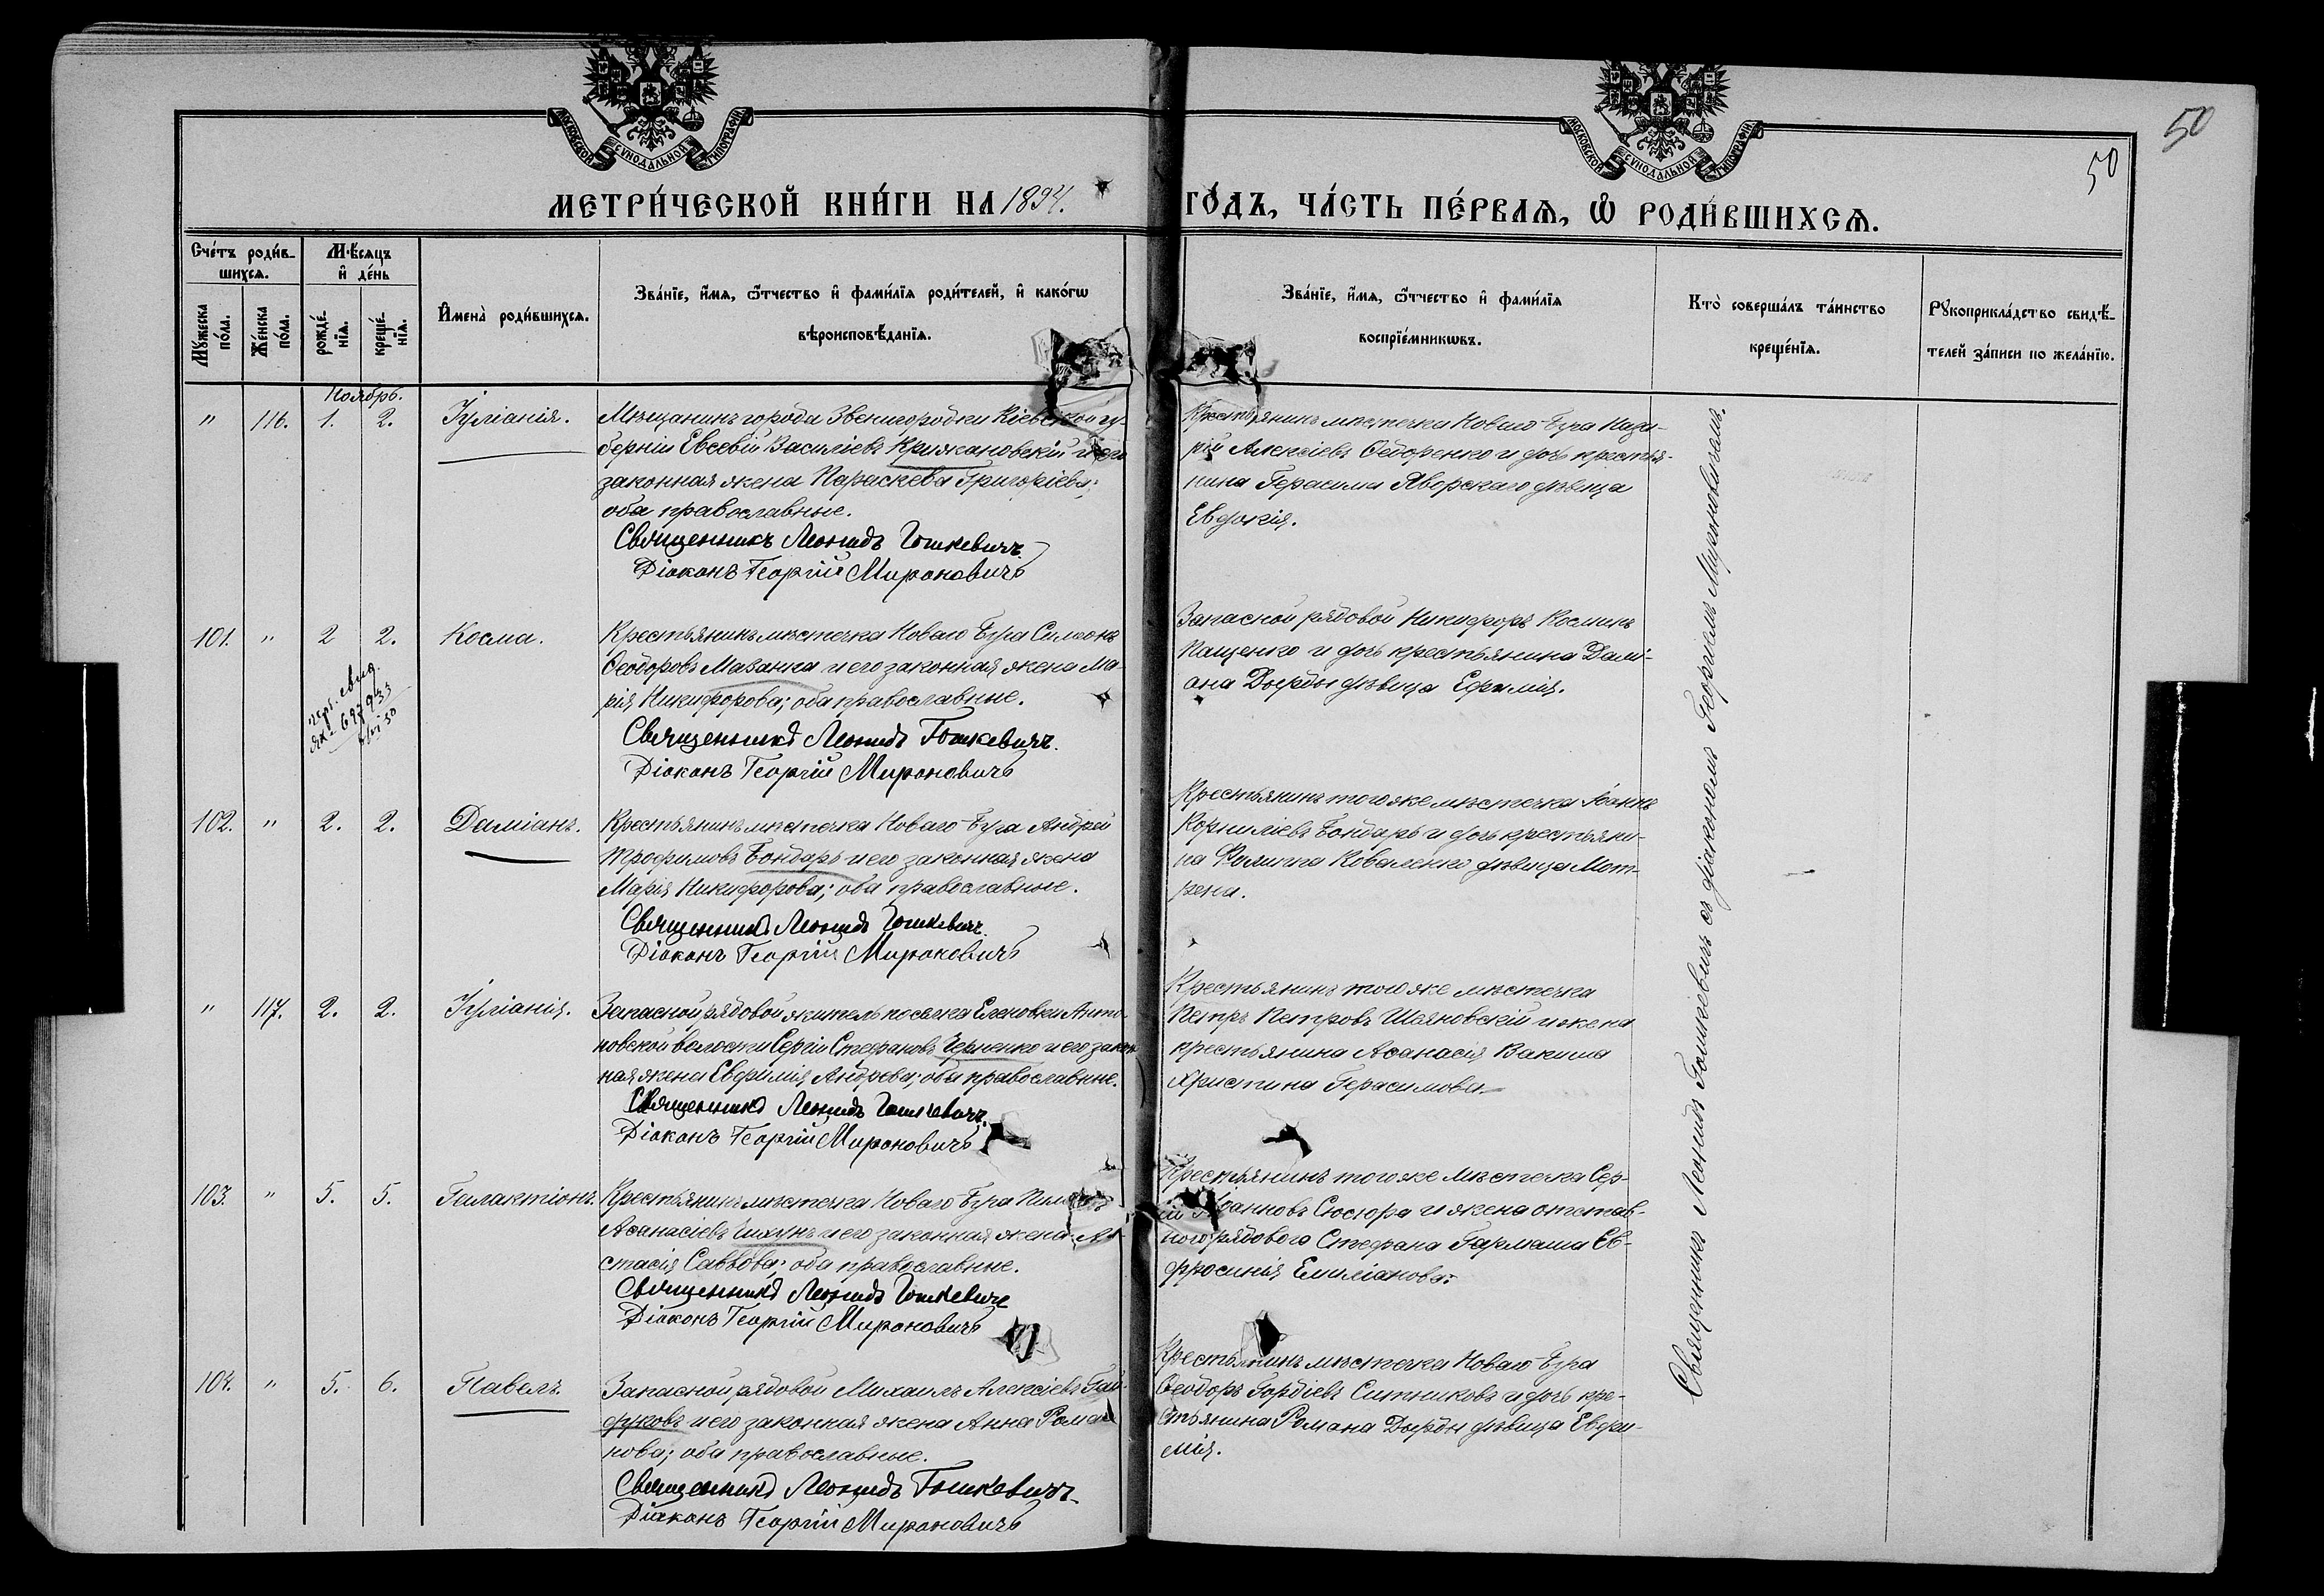 МОСКОВСКОЙ СУНОДАЛЬНОЙ ТИПОГРАФІИ
МОСКОВСКОЙ СУНОДАЛЬНОЙ ТИПОГРАФІИ
50
50
МЕТРИ́ЧЕСКОЙ КНИ́ГИ НА 1894.
ГО́ДЪ, ЧА́СТЬ ПЕ́РВАѦ, Ѿ РОДИ́ВШИХСѦ.
Сче́тъ роди́в-
шихсѧ.
Мѣ́сѧцъ
и҆ де́нь
Мꙋ́жеска
по́ла.
Же́нска
по́ла.
рожде́-
нїѧ.
креще́-
нїѧ.
И҆мена̀ роди́вшихсѧ.
Зва́нїе, и҆́мѧ, ѻ҆́тчество и҆ фами́лїѧ роди́телей, и҆ како́гѡ
вѣроисповѣ́данїѧ.
Зва́нїе, и҆́мѧ, ѻ҆́тчество и҆ фами́лїѧ
воспрїе́мникѡвъ.
Кто̀ соверша́лъ та́инство
креще́нїѧ.
Рꙋкоприкла́дство свидѣ́-
телей за́писи по жела́нїю.
Ноябрь.
" 116. 1. 2. Іуліанія.
Мѣщанинъ города Звенигородки Кіевской гу-
берніи Евсевій Василіевъ Крижановскій и его
законная жена Параскева Григоріева;
оба православные.
Священникъ Леонидъ Гошкевичъ
Діаконъ Георгій Мироновичъ
Крестьянинъ мѣстечка Новаго-Буга Наза-
рій Алексіевъ Ѳедоренко и дочь крестья-
нина Герасима Яворскаго дѣвица
Евдокія.
101. " 2 2. Косма.
Крестьянинъ мѣстечка Новаго Буга Симеонъ
Ѳеодоровъ Мазанка и его законная жена Ма-
рія Никифорова; оба православные.
Священникъ Леонидъ Гошкевичъ.
Діаконъ Георгій Мироновичъ
Запасной рядовой Никифоръ Косминъ
Пащенко и дочь крестьянина Дамі-
ана Дырды дѣвица Ефимія.
102. " 2. 2. Даміанъ.
Крестьянинъ мѣстечка Новаго-Буга Андрей
Трофимовъ Бондарь и его законная жена
Марія Никифорова; оба православные.
Священникъ Леонидъ Гошкевичъ.
Діаконъ Георгій Мироновичъ
Крестьянинъ того же мѣстечка Іоаннъ
Корниліевъ Бондарь и дочь крестьяни-
на Филиппа Коваленко дѣвица Мот-
рена.
" 117. 2. 2. Іуліанія.
Запасной рядовой житель поселка Еленовки Анто-
новской волости Сергій Стефановъ Черненко и его закон-
ная жена Евфимія Андреева; оба православные.
Священникъ Леонидъ Гошкевичъ.
Діаконъ Георгій Мироновичъ
Крестьянинъ того же мѣстечка
Петръ Петровъ Шеяновскій и жена
крестьянина Аѳанасія Вакиша
Христина Герасимова.
103. " 5. 5. Галактіонъ.
Крестьянинъ мѣстечка Новаго Буга
Аѳанасіевъ и его законная жена
стасія Саввова; оба православные.
Священникъ Леонидъ Гошкевичъ
Діаконъ Георгій Мироновичъ
Крестьянинъ того же мѣстечка Сер-
гій Іоанновъ Сюсюра и жена отстав-
ного рядового Стефана Гармаша Ев-
фросинія Емиліанова.
104. " 5. 6. Павелъ.
Запасной рядовой Михаилъ Алексіевъ Гай-
дуковъ и его законная жена Анна Рома-
нова; оба православные.
Священникъ Леонидъ Гошкевичъ.
Діаконъ Георгій Мироновичъ
Крестьянинъ мѣстечка Новаго-Буга
Ѳеодоръ Гордіевъ Ситниковъ и дочь кре-
стьянина Романа Дырды дѣвица Евфи-
мія.
Священникъ Леонидъ Гошкевичъ съ діакономъ Георгіемъ Мироновичемъ.